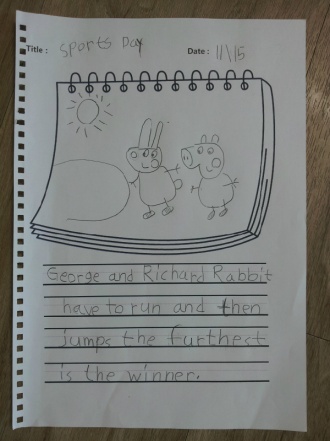 Title : Sports Day
Date : 11\15
George and Richard Rabbit
have to run and then
jumps the furthest
is the winner.